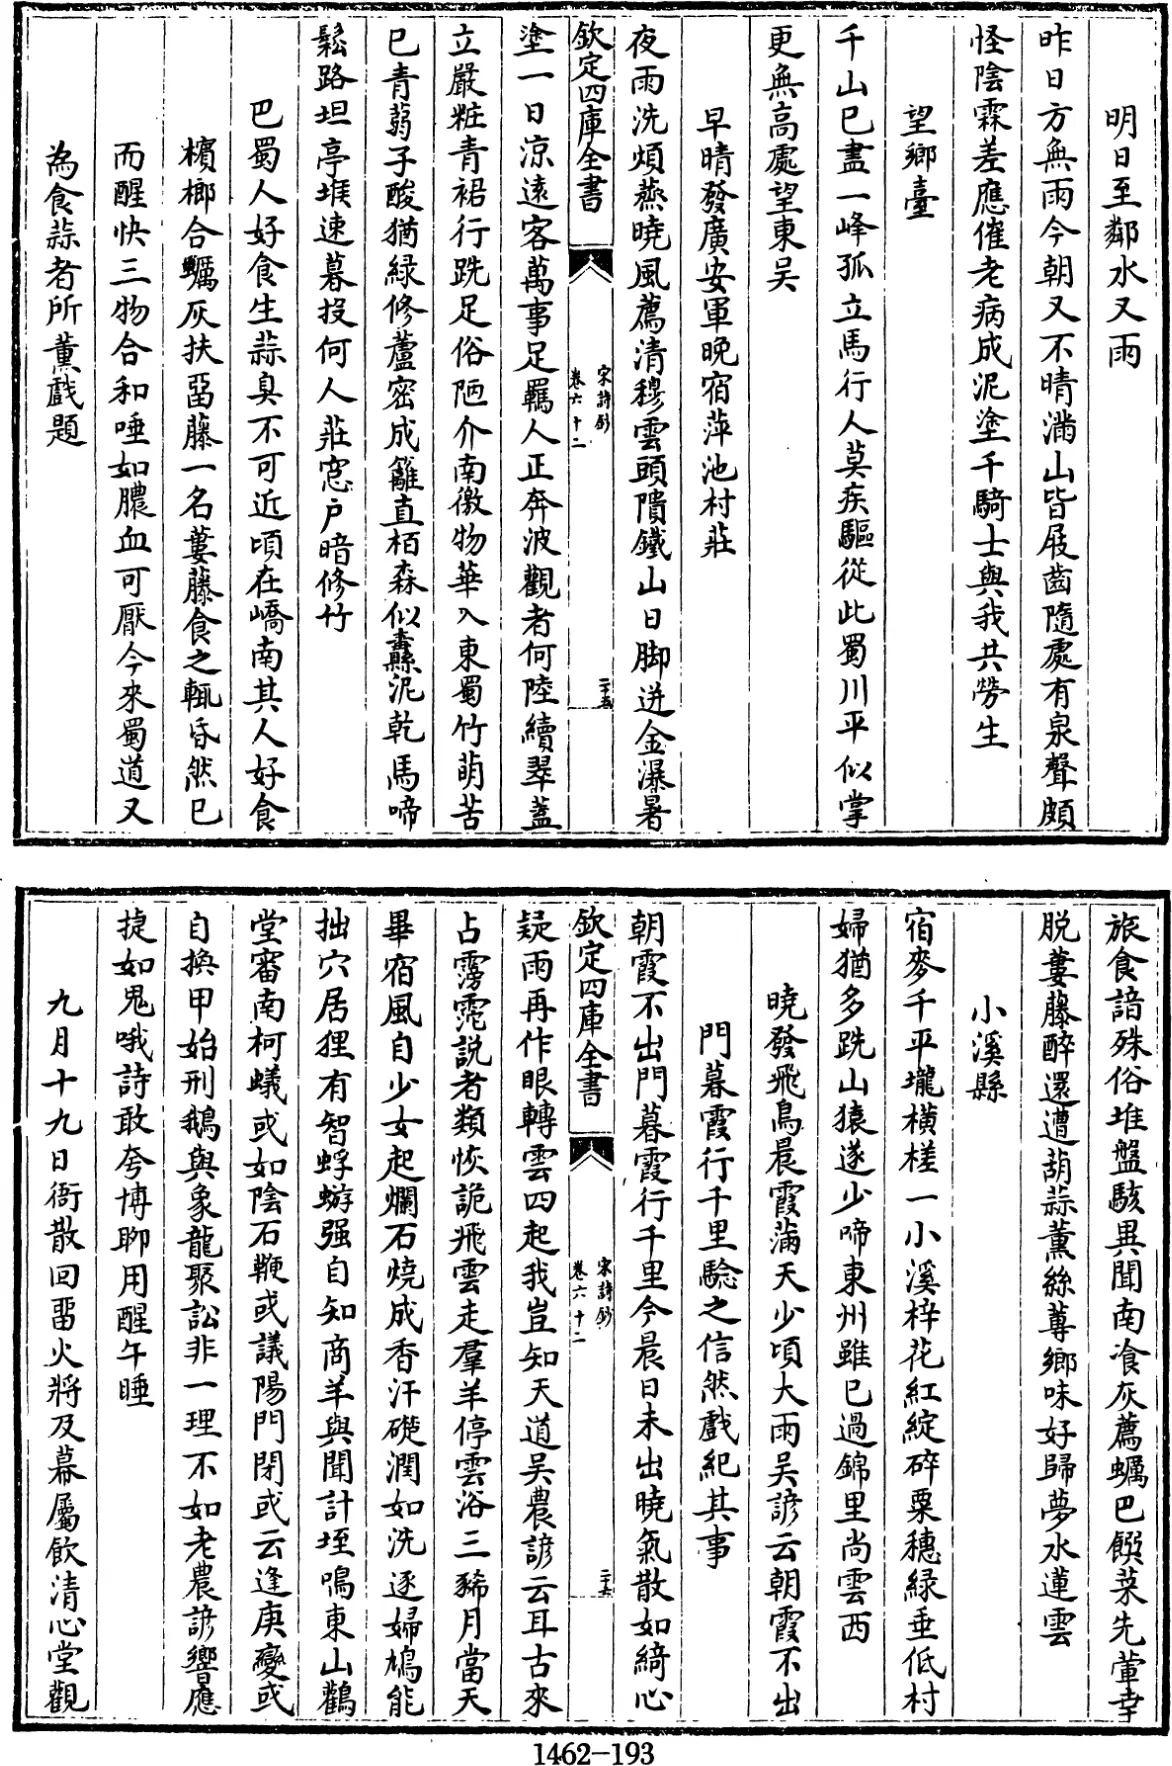 明日至鄰水又雨
昨日方無雨今朝又不晴滿山皆屐齒隨處有泉聲頗
怪陰霖差應催老病成泥塗千騎士與我共勞生
望鄉臺
千山已盡一峰孤立馬行人莫疾驅從此蜀川平似掌
更無高處望東吴
早晴發廣安軍晚宿萍池村莊
夜雨洗煩蒸曉風薦清穆雲頭隤鐵山日脚迸金瀑暑
欽定四庫全書
宋詩鈔
卷六十二
二十五
塗一日涼遠客萬事足羈人正奔波觀者何陸續翠蓋
立嚴粧青裙行跣足俗陋介南徼物華入東蜀竹萌苦
已青蒻子酸猶緑修蘆密成籬直栢森似纛泥乾馬啼
鬆路坦亭堠速暮投何人莊窓户暗修竹
巴蜀人好食生蒜臭不可近頃在嶠南其人好食
檳榔合蠣灰扶畱藤一名蔞藤食之輒昏然已
而醒快三物合和唾如膿血可厭今來蜀道又
為食蒜者所薰戲題
旅食諳殊俗堆盤駭異聞南飡灰薦蠣巴饌菜先葷幸
脱蔞藤醉還遭胡蒜薰絲蓴鄉味好歸夢水蓮雲
小溪縣
宿麥千平壠橫槎一小溪梓花紅綻碎粟穗緑垂低村
婦猶多跣山猿遂少啼東州雖已過錦里尚雲西
曉發飛鳥晨霞滿天少頃大雨吴諺云朝霞不出
門暮霞行千里驗之信然戲紀其事
朝霞不出門暮霞行千里今晨日未出曉氣散如綺心
欽定四庫全書
宋詩鈔
卷六十二
二十六
疑雨再作眼轉雲四起我豈知天道吴農諺云耳古來
占雱霓説者類恢詭飛雲走羣羊停雲浴三豨月當天
畢宿風自少女起爛石燒成香汗礎潤如洗逐婦鳩能
拙穴居狸有智蜉蝣强自知商羊與聞計垤鳴東山鸛
堂審南柯蟻或如陰石鞭或議陽門閉或云逢庚變或
自換甲始刑鵝與象龍聚訟非一理不如老農諺響應
捷如鬼哦詩敢夸博聊用醒午睡
九月十九日衙散回畱火將及幕屬飲清心堂觀
1462-193